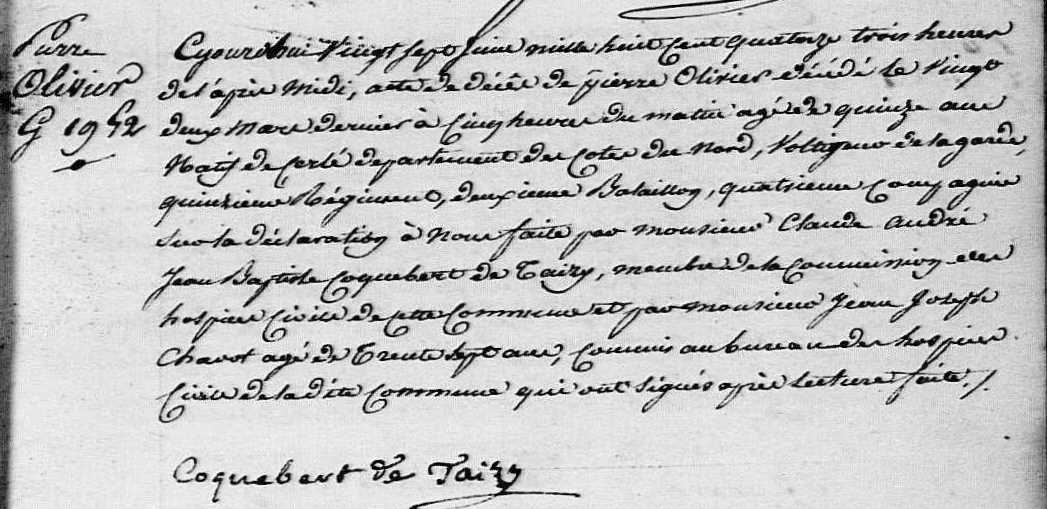 Pierre
Olivier
G 1952
Cejourd'hui Vingt sept juin mille huit cent quatorze trois heures
de l'après Midi, acte de décès de pierre Olivier décédé le Vingt
deux Mars dernier à Cinq heures du matin agé de quinze ans
Natif de Corlé departement des Cotes du Nord, Voltigeur de la garde,
quinzieme Régiment, deuxieme Bataillon, quatrieme Compagnie
sur la déclaration à Nous faite par Monsieur Claude André
Jean Baptiste Coquebert de Taizy, membre de la Commission des
hospices Civils de cette Commune et par Monsieur Jean Joseph
Chavot agé de Trente sept ans, Commis au bureau des hospices
Civils de la dite Commune qui ont signés après Lecture faite./.
Coquebert de Taizy